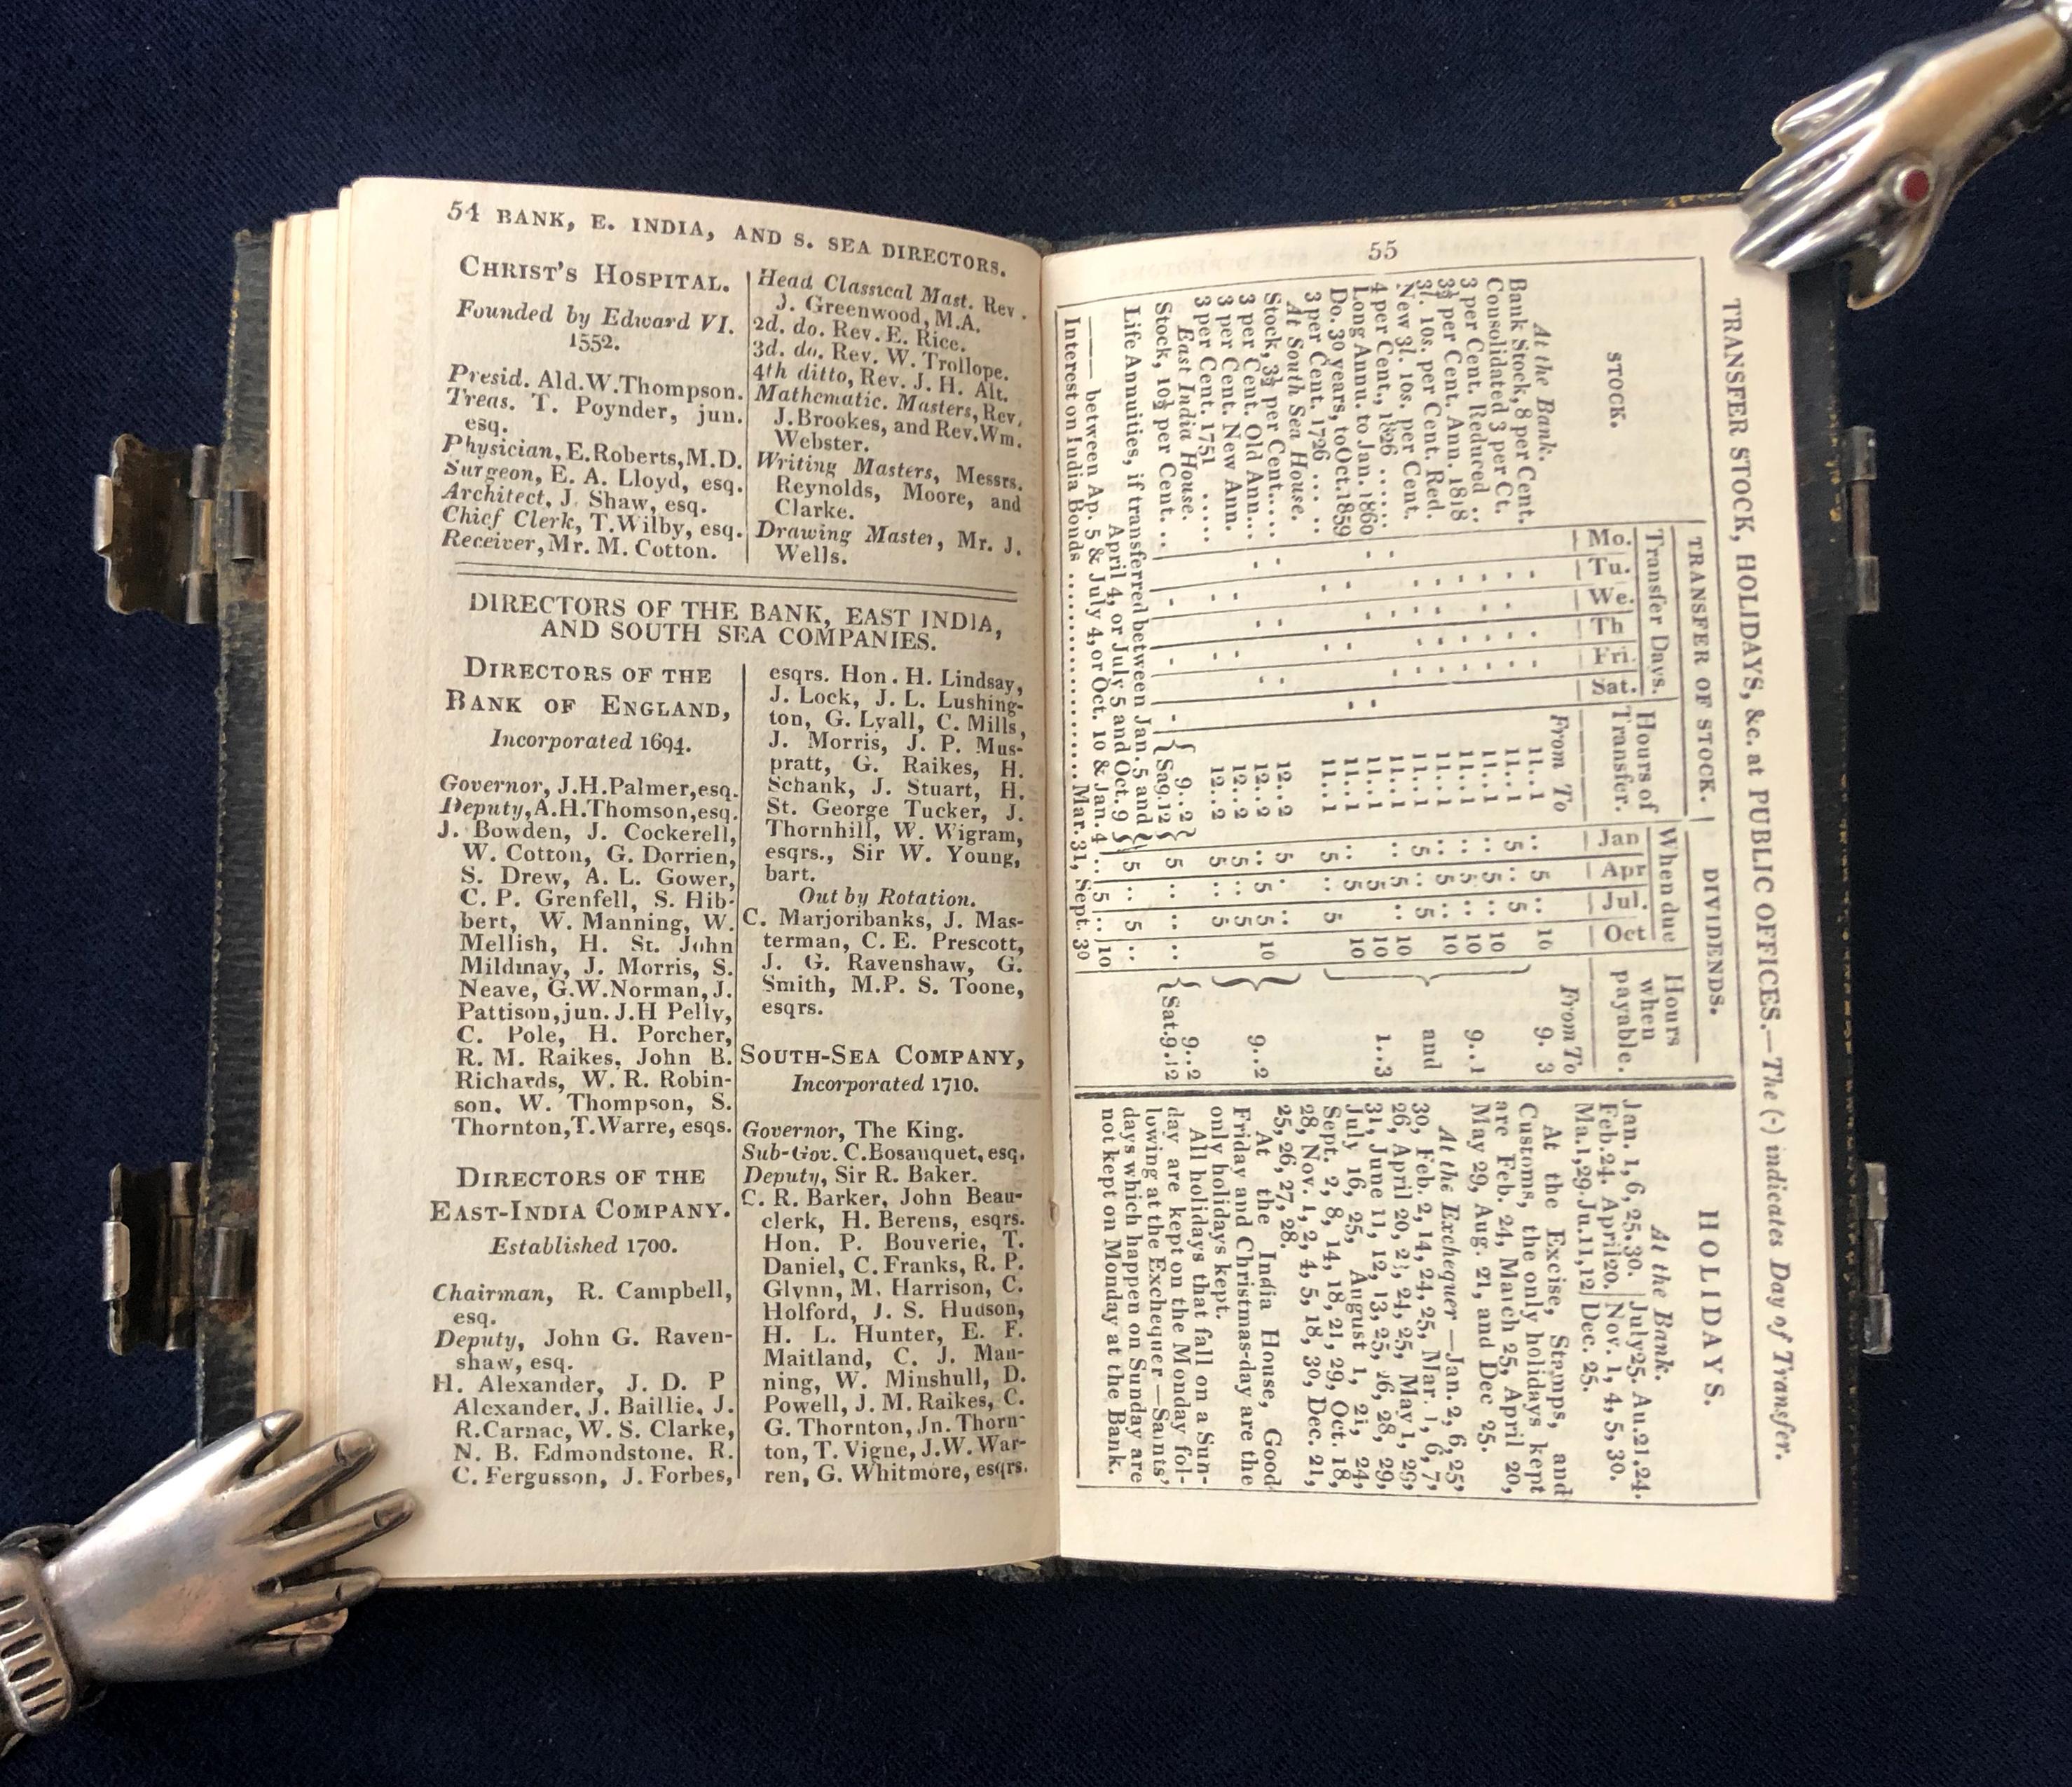 54 BANK, E. INDIA, AND S. SEA DIRECTORS.
CHRIST'S HOSPITAL.
Founded by Edward VI.
1552.
Presid. Ald.W.Thompson.
Treas. T. Poynder, jun.
esq.
Physician, E.Roberts, M.D.
Surgeon, E. A. Lloyd, esq.
Architect, J. Shaw, esq.
Chief Clerk, T.Wilby, esq.
Receiver, Mr. M. Cotton.
Head Classical Mast. Rev.
J. Greenwood, M.A.
2d. do. Rev. E. Rice.
3d. do. Rev. W. Trollope.
4th ditto, Rev. J. H. Alt.
Mathematic. Masters, Rev.
J.Brookes, and Rev.Wm.
Webster.
Writing Masters, Messrs.
Reynolds, Moore, and
Clarke.
Drawing Master, Mr. J.
Wells.
DIRECTORS OF THE BANK, EAST INDIA,
AND SOUTH SEA COMPANIES.
DIRECTORS OF THE
BANK OF ENGLAND,
Incorporated 1694.
Governor, J.H.Palmer, esq.
Deputy, A.H.Thomson, esq.
J. Bowden, J. Cockerell,
W. Cotton, G. Dorrien,
S. Drew, A. L. Gower,
C. P. Grenfell, S. Hib-
bert, W. Manning, W.
Mellish, H. St. John
Mildmay, J. Morris, S.
Neave, G.W.Norman, J.
Pattison, jun. J.H Pelly,
C. Pole, H. Porcher,
R. M. Raikes, John B.
Richards, W. R. Robin-
son, W. Thompson, S.
Thornton, T.Warre, esqs.
DIRECTORS OF THE
EAST-INDIA COMPANY.
Established 1700.
Chairman, R. Campbell,
esq.
Deputy, John G. Raven-
shaw, esq.
H. Alexander, J. D. P
Alexander, J. Baillie, J.
R.Carnac, W. S. Clarke,
N. B. Edmondstone, R.
C. Fergusson, J. Forbes,
esqrs. Hon. H. Lindsay,
J. Lock, J. L. Lushing-
ton, G. Lyall, C. Mills,
J. Morris, J. P. Mus-
pratt, G. Raikes, H.
Schank, J. Stuart, H.
St. George Tucker, J.
Thornhill, W. Wigram,
esqrs., Sir W. Young,
bart.
Out by Rotation.
C. Marjoribanks, J. Mas-
terman, C. E. Prescott,
J. G. Ravenshaw, G.
Smith, M.P. S. Toone,
esqrs.
SOUTH-SEA COMPANY,
Incorporated 1710.
Governor, The King.
Sub-Gov. C.Bosanquet, esq.
Deputy, Sir R. Baker.
C. R. Barker, John Beau-
clerk, H. Berens, esqrs.
Hon. P. Bouverie, T.
Daniel, C. Franks, R. P.
Glynn, M. Harrison, C.
Holford, J. S. Hudson,
H. L. Hunter, E. F.
Maitland, C. J. Man-
ning, W. Minshull, D.
Powell, J. M. Raikes, C.
G. Thornton, Jn. Thorn-
ton, T. Vigne, J.W. War-
ren, G. Whitmore, esqrs.
55
TRANSFER STOCK, HOLIDAYS, &c. at PUBLIC OFFICES.—The (-) indicates Day of Transfer.
STOCK.
TRANSFER OF STOCK.
DIVIDENDS.
Transfer Days.
Hours of Transfer.
When due
Hours when payable.
Mo. Tu. We. Th Fri. Sat.
From To
Jan Apr Jul. Oct
From To
At the Bank.
Bank Stock, 8 per Cent. 11..1 .. 5 .. 10 9. 3
Consolidated 3 per Ct. 11..1 5 .. 5 ..
3 per Cent. Reduced .. 11..1 .. 5 .. 10
3½ per Cent. Ann. 1818 11..1 .. 5 .. 10 9..1
3l. 10s. per Cent. Red. 11..1 .. 5 .. 10
New 3l. 10s. per Cent. 11..1 5 .. 5 .. and
4 per Cent., 1826 11..1 .. 5 .. 10
Long Annu. to Jan. 1860 11..1 5 10 1..3
Do. 30 years, to Oct. 1859 11..1 .. 5 10
3 per Cent. 1726 11..1 5 .. 5
At South Sea House.
Stock, 3½ per Cent. 12..2 5 . ..
3 per Cent. Old Ann. 12..2 .. 5 5 10 9..2
3 per Cent. New Ann. 12..2 5 .. 5
3 per Cent. 1751 12..2 5 .. 5
East India House.
Stock, 10½ per Cent. .. 9..2 Sag.12 5 .. .. .. 9..2 Sat.9.12
Life Annuities, if transferred between Jan. 5 and
April 4, or July 5 and Oct. 9 5 .. 5 ..
—— between Ap. 5 & July 4, or Oct. 10 & Jan. 4 .. 5 .. 10
Interest on India Bonds .................. Mar. 31, Sept. 30
HOLIDAYS.
At the Bank.
Jan. 1, 6, 25, 30.
Feb.24. April20.
Ma.1,29.Ju.11,12
July25. Au.21.24.
Nov. 1, 4, 5, 30.
Dec. 25.
At the Excise, Stamps, and
Customs, the only holidays kept
are Feb. 24, March 25, April 20,
May 29, Aug. 21, and Dec 25.
At the Exchequer—Jan. 2, 6, 25,
30, Feb. 2, 14, 24, 25, Mar. 1, 6, 7,
26, April 20, 23, 24, 25, May 1, 29,
31, June 11, 12, 13, 25, 26, 28, 29,
July 16, 25, August 1, 21, 24,
Sept. 2, 8, 14, 18, 21, 29, Oct. 18,
28, Nov. 1, 2, 4, 5, 18, 30, Dec. 21,
25, 26, 27, 28.
At the India House, Good
Friday and Christmas-day are the
only holidays kept.
All holidays that fall on a Sun-
day are kept on the Monday fol-
lowing at the Exchequer.—Saints'
days which happen on Sunday are
not kept on Monday at the Bank.